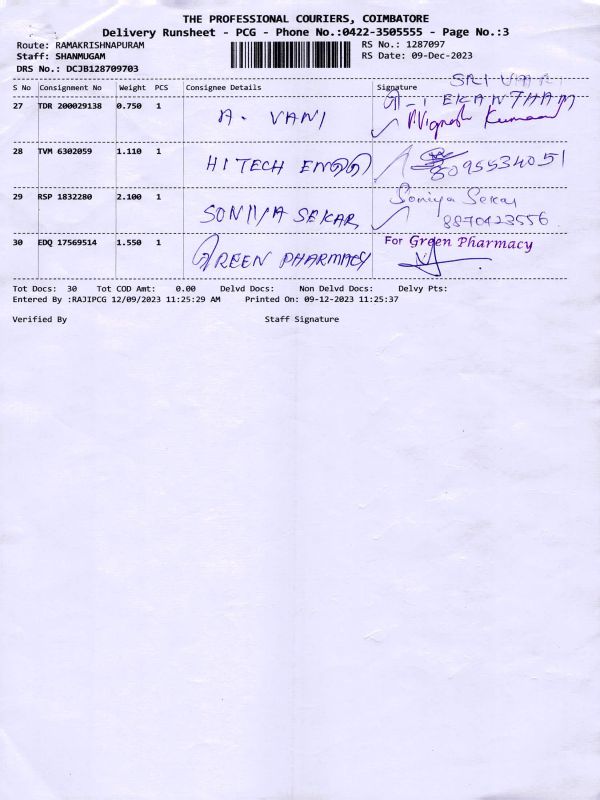 THE PROFESSIONAL COURIERS, COIMBATORE
Delivery Runsheet - PCG - Phone No.:0422-3505555 - Page No.:3
Route: RAMAKRISHNAPURAM
RS No.: 1287097
Staff: SHANMUGAM
RS Date: 09-Dec-2023
DRS No.: DCJB128709703
S No Consignment No Weight PCS Consignee Details Signature
SRI VARI
27 TDR 200029138 0.750 1 A. VANI EKANTHAM
Vignesh Kumaar
28 TVM 6302059 1.110 1 HITECH ENGG 8095534051
29 RSP 1832280 2.100 1 SONIYA SEKAR Soniya Sekar
8870423556
30 EDQ 17569514 1.550 1 GREEN PHARMACY For Green Pharmacy
Tot Docs: 30 Tot COD Amt: 0.00 Delvd Docs: Non Delvd Docs: Delvy Pts:
Entered By :RAJIPCG 12/09/2023 11:25:29 AM Printed On: 09-12-2023 11:25:37
Verified By Staff Signature